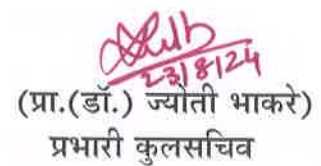 23/8/24
(प्रा.(डॉ.) ज्योती भाकरे)
प्रभारी कुलसचिव